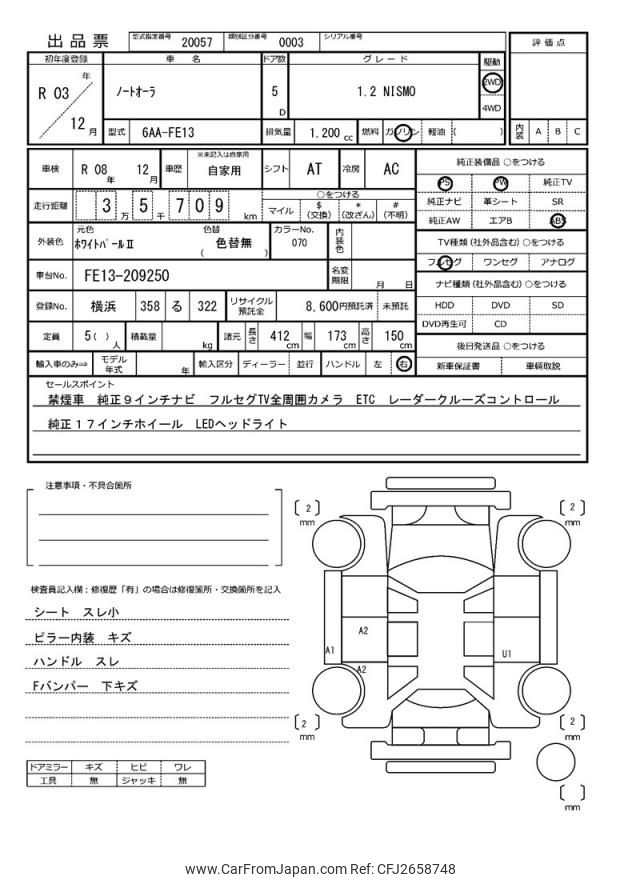 出品票 型式指定番号 20057 類別区分番号 0003 シリアル番号
評価点
初年度登録 車名 ドア数 グレード 駆動
R 03 年 12 月 ノートオーラ 5 D 1.2 NISMO 2WD 4WD
型式 6AA-FE13 排気量 1,200 cc 燃料 ガソリン 軽油 ( ) 内装 A B C
車検 R 08 年 12 月 車歴 ※未記入は自家用 自家用 シフト AT 冷房 AC
走行距離 3 万 5 千 7 0 9 km ○をつける マイル $ (交換) * (改ざん) # (不明)
外装色 元色 ホワイトパールⅡ 色替 ( 色替無 ) カラーNo. 070 内装色
車台No. FE13-209250 名変期限 月 日
登録No. 横浜 358 る 322 リサイクル預託金 8,600円預託済 未預託
定員 5( ) 人 積載量 kg 諸元 長さ 412 cm 幅 173 cm 高さ 150 cm
輸入車のみ⇒ モデル年式 年 輸入区分 ディーラー 並行 ハンドル 左 右
純正装備品 ○をつける
PS PW 純正TV
純正ナビ 革シート SR
純正AW エアB ABS
TV種類 (社外品含む) ○をつける
フルセグ ワンセグ アナログ
ナビ種類 (社外品含む) ○をつける
HDD DVD SD
DVD再生可 CD
後日発送品 ○をつける
新車保証書 車輌取説
セールスポイント
禁煙車 純正9インチナビ フルセグTV全周囲カメラ ETC レーダークルーズコントロール
純正17インチホイール LEDヘッドライト
注意事項・不具合箇所
検査員記入欄：修復歴「有」の場合は修復箇所・交換箇所を記入
シート スレ小
ピラー内装 キズ
ハンドル スレ
Fバンパー 下キズ
ドアミラー キズ ヒビ ワレ
工具 無 ジャッキ 無
[ 2 ] mm
[ 2 ] mm
A2
A1
U1
A2
[ 2 ] mm
[ 2 ] mm
[ ] mm
www.CarFromJapan.com Ref: CFJ2658748